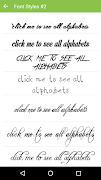 Font Styles #2
click me to see all alphabets
click me to see all alphabets
CLICK ME TO SEE ALL
ALPHABETS
click me to see all
alphabets
click me to see all alphabets
click me to see all alphabets
click me to see all alphabets
click me to see all alphabets